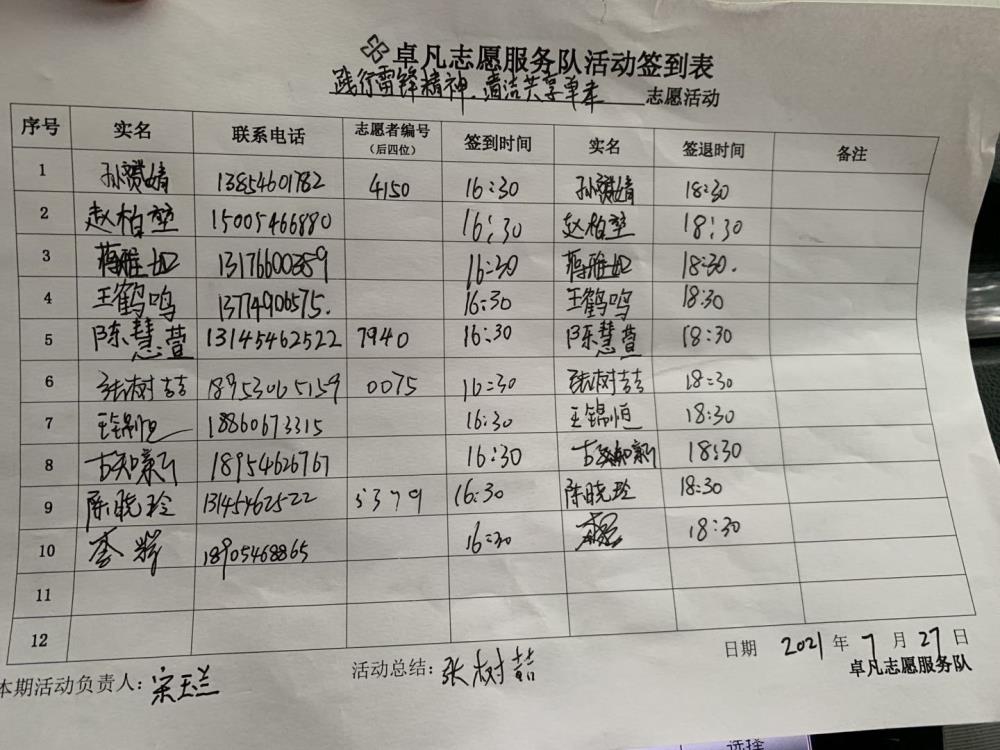 卓凡志愿服务队活动签到表
践行雷锋精神、清洁共享单车 志愿活动
序号 实名 联系电话 志愿者编号（后四位） 签到时间 实名 签退时间 备注
1 孙赟婧 13854601782 4150 16:30 孙赟婧 18:30
2 赵柏堃 15005466880 16:30 赵柏堃 18:30
3 蒋雅如 13176600359 16:30 蒋雅如 18:30.
4 王鹤鸣 13774906575. 16:30 王鹤鸣 18:30
5 陈慧萱 13145462522 7940 16:30 陈慧萱 18:30
6 张树喆 18953065159 0075 16:30 张树喆 18:30
7 王锦恒 18860673315 16:30 王锦恒 18:30
8 古知新 18954626767 16:30 古知新 18:30
9 陈晓玲 13145462522 5379 16:30 陈晓玲 18:30
10 李辉 18905468865 16:30 18:30
11
12
日期 2021 年 7 月 27 日
本期活动负责人：宋玉兰 活动总结：张树喆 卓凡志愿服务队
选择